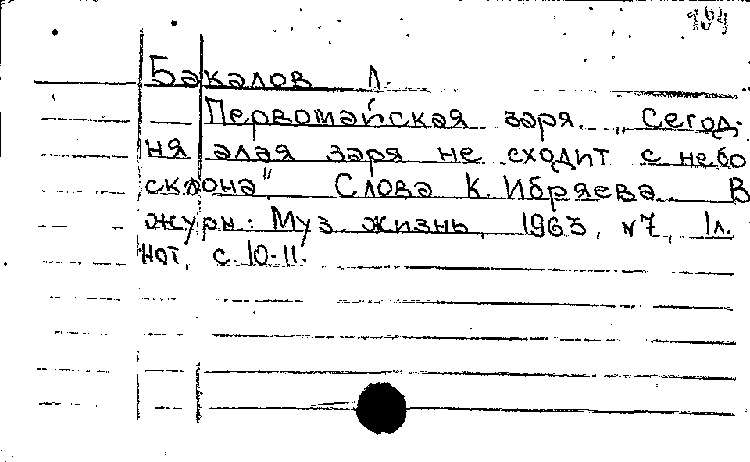 194
Бакалов Л.
Первомайская заря. „Сегод-
ня алая заря не сходит с небо
склона" Слова К. Ибряева. В
журн: Муз. жизнь, 1963, №7, 1л.
нот, с. 10-11.